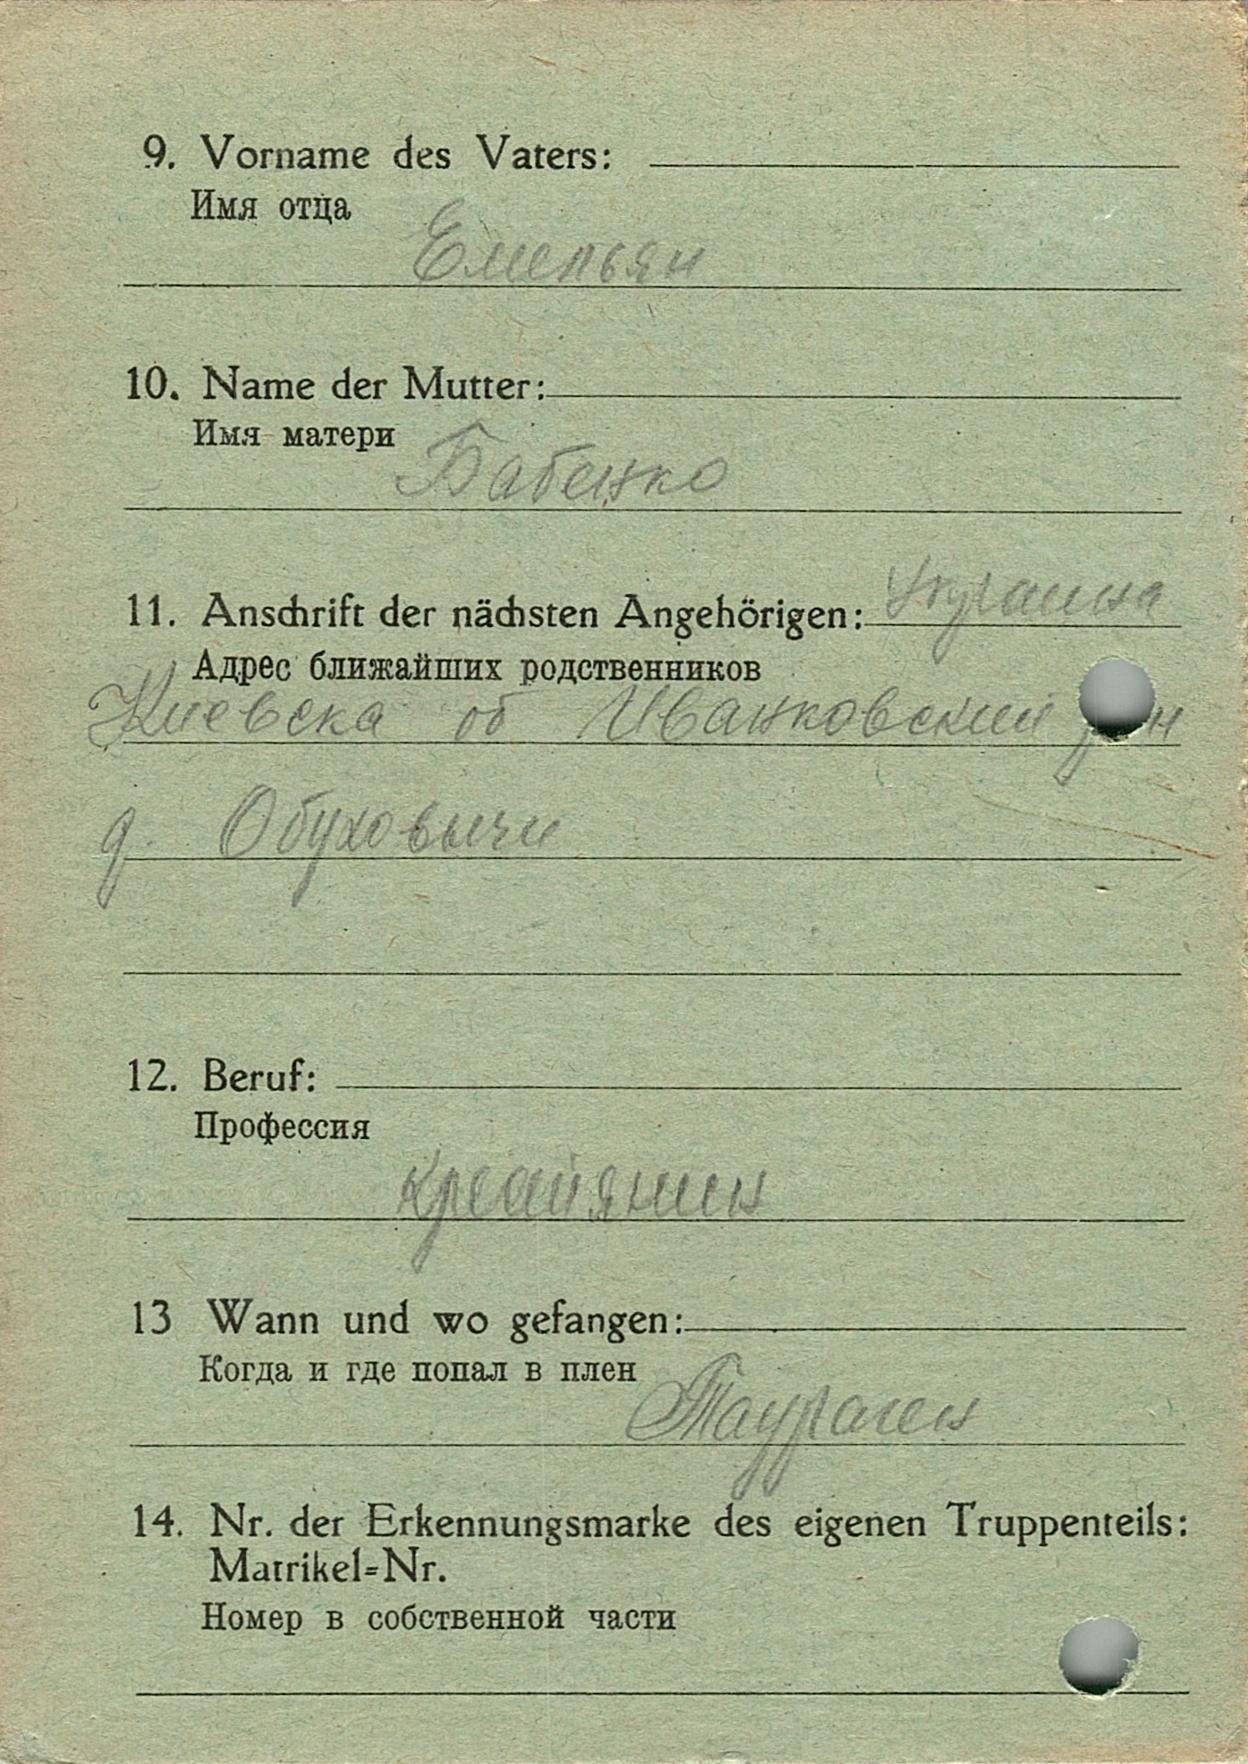 9. Vorname des Vaters:
Имя отца
Емельян
10. Name der Mutter:
Имя матери
Бабенко
11. Anschrift der nächsten Angehörigen: Украина
Адрес ближайших родственников
Киевска об Иванковский
д. Обуховычи
12. Beruf:
Профессия
крестянин
13 Wann und wo gefangen:
Когда и где попал в плен
Таураген
14. Nr. der Erkennungsmarke des eigenen Truppenteils:
Matrikel=Nr.
Номер в собственной части